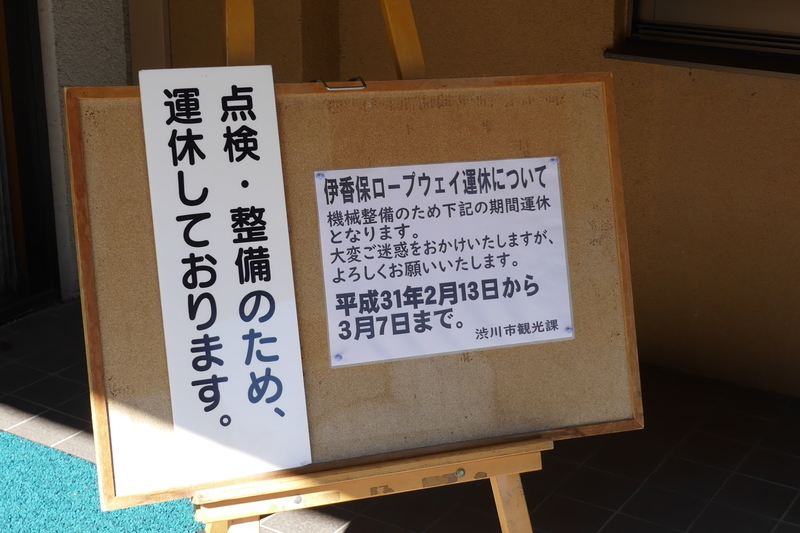 点検・整備のため、
運休しております。
伊香保ロープウェイ運休について
機械整備のため下記の期間運休
となります。
大変ご迷惑をおかけいたしますが、
よろしくお願いいたします。
平成31年2月13日から
3月7日まで。
渋川市観光課